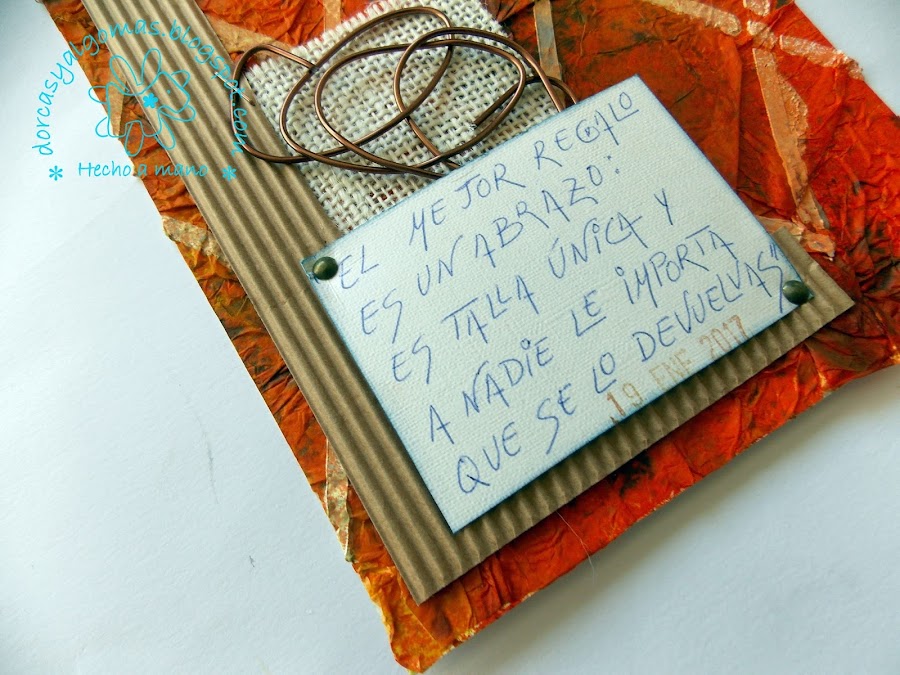 dorcasyalgomas.blogspot.com
* Hecho a mano *
"EL MEJOR REGALO
ES UN ABRAZO:
ES TALLA ÚNICA Y
A NADIE LE IMPORTA
QUE SE LO DEVUELVAS"
19 ENE 2017